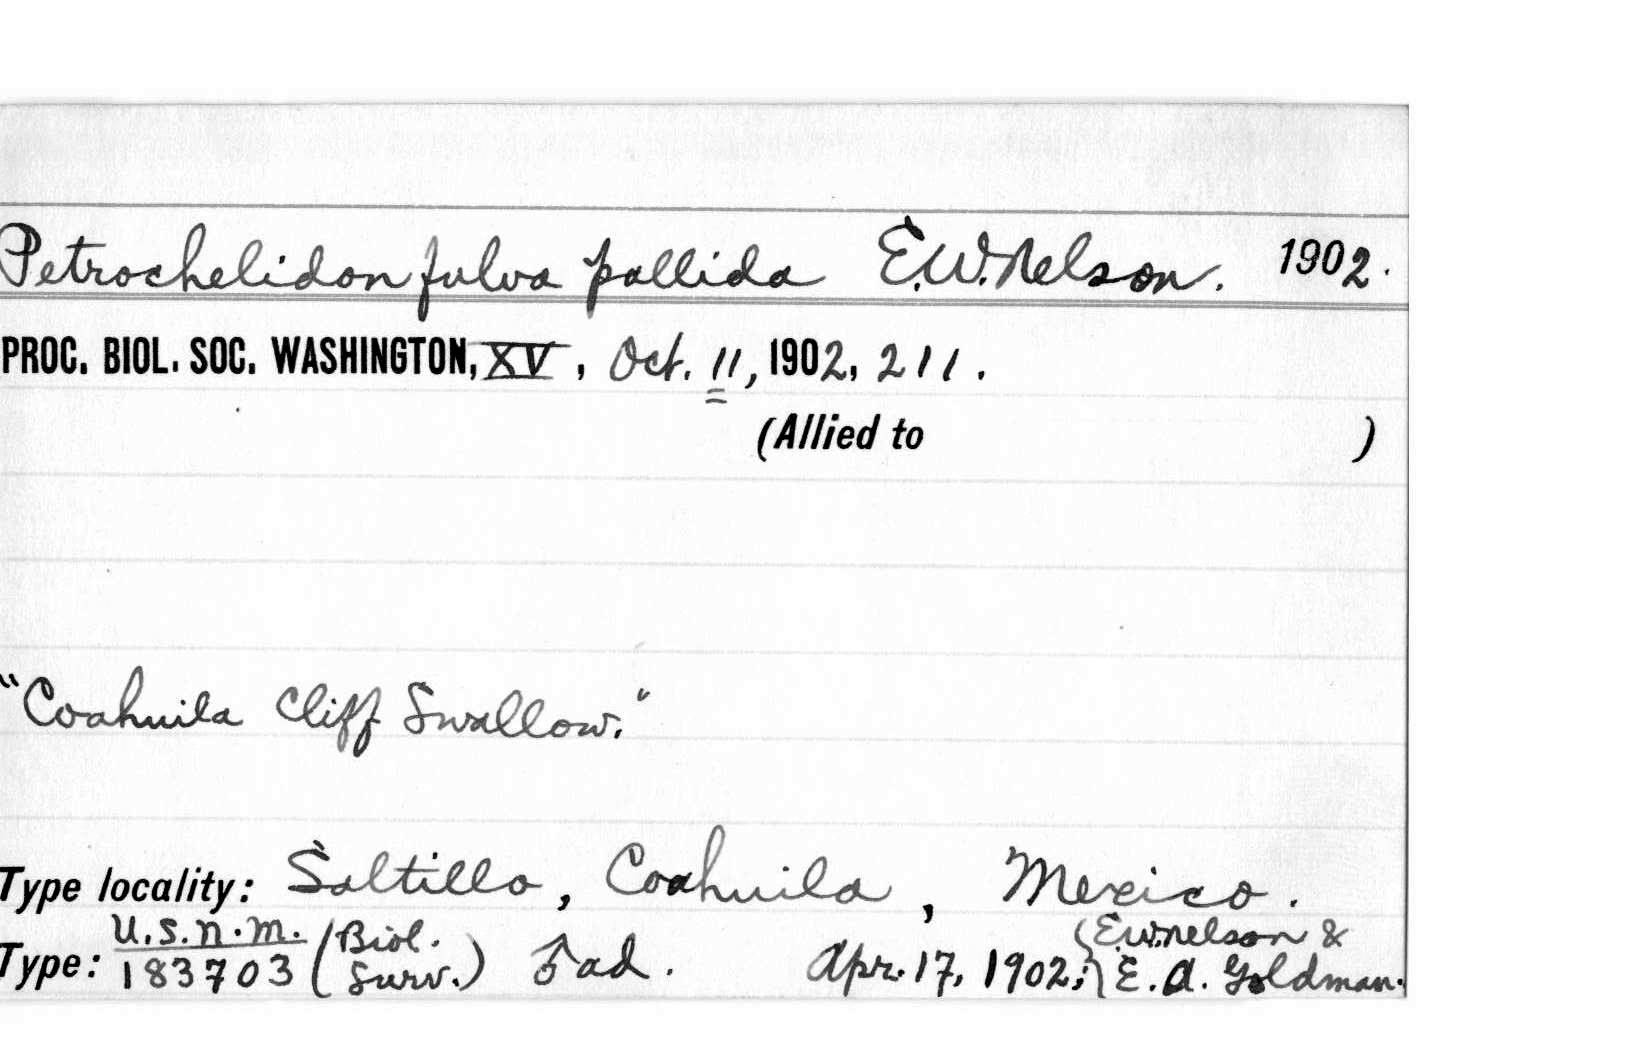 Petrochelidon fulva pallida E.W. Nelson. 1902.
PROC. BIOL. SOC. WASHINGTON, XV, Oct. 11, 1902, 211.
(Allied to )
"Coahuila Cliff Swallow."
Type locality: Saltillo, Coahuila, Mexico.
Type: U.S.N.M. 183703 (Biol. Surv.) ♂ ad. Apr. 17, 1902; E.W. Nelson & E. A. Goldman.